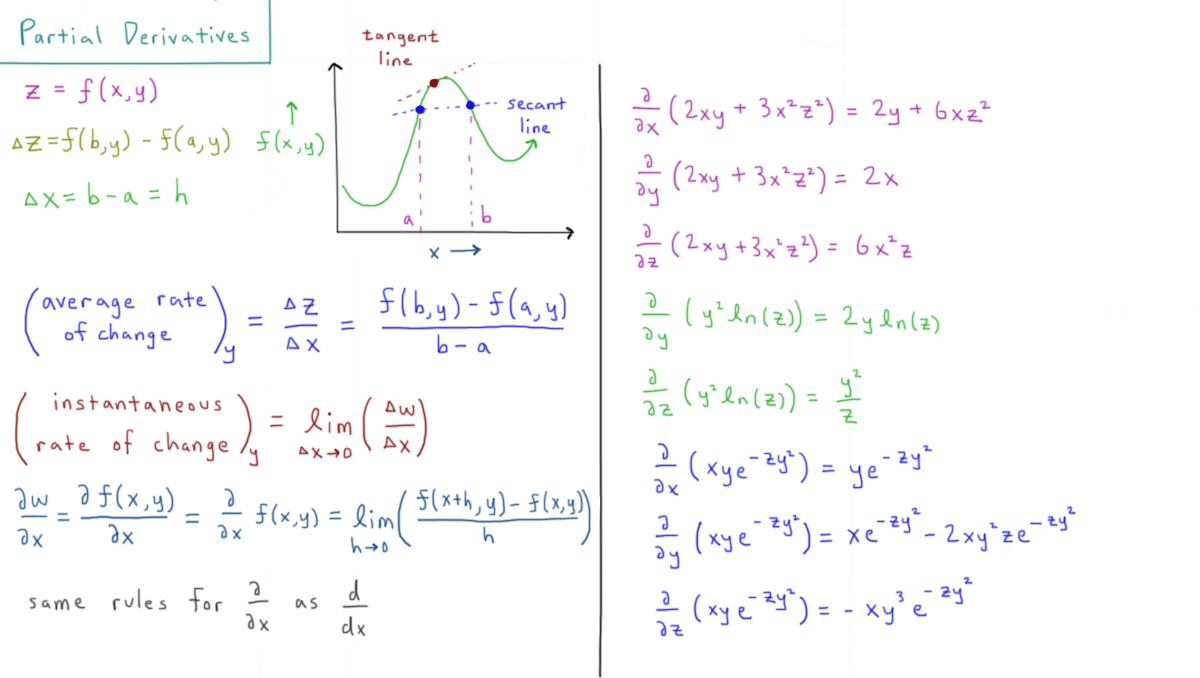 Partial Derivatives
z = f(x,y)
Δz = f(b,y) - f(a,y)
Δx = b - a = h
↑
f(x,y)
tangent
line
secant
line
a
b
x →
(average rate of change)_y = Δz/Δx = (f(b,y) - f(a,y))/(b - a)
(instantaneous rate of change)_y = lim_{Δx→0} (Δw/Δx)
∂w/∂x = ∂f(x,y)/∂x = ∂/∂x f(x,y) = lim_{h→0} ((f(x+h,y) - f(x,y))/h)
same rules for ∂/∂x as d/dx
∂/∂x (2xy + 3x²z²) = 2y + 6xz²
∂/∂y (2xy + 3x²z²) = 2x
∂/∂z (2xy + 3x²z²) = 6x²z
∂/∂y (y² ln(z)) = 2y ln(z)
∂/∂z (y² ln(z)) = y²/z
∂/∂x (xye^{-zy²}) = ye^{-zy²}
∂/∂y (xye^{-zy²}) = xe^{-zy²} - 2xy²ze^{-zy²}
∂/∂z (xye^{-zy²}) = -xy³e^{-zy²}